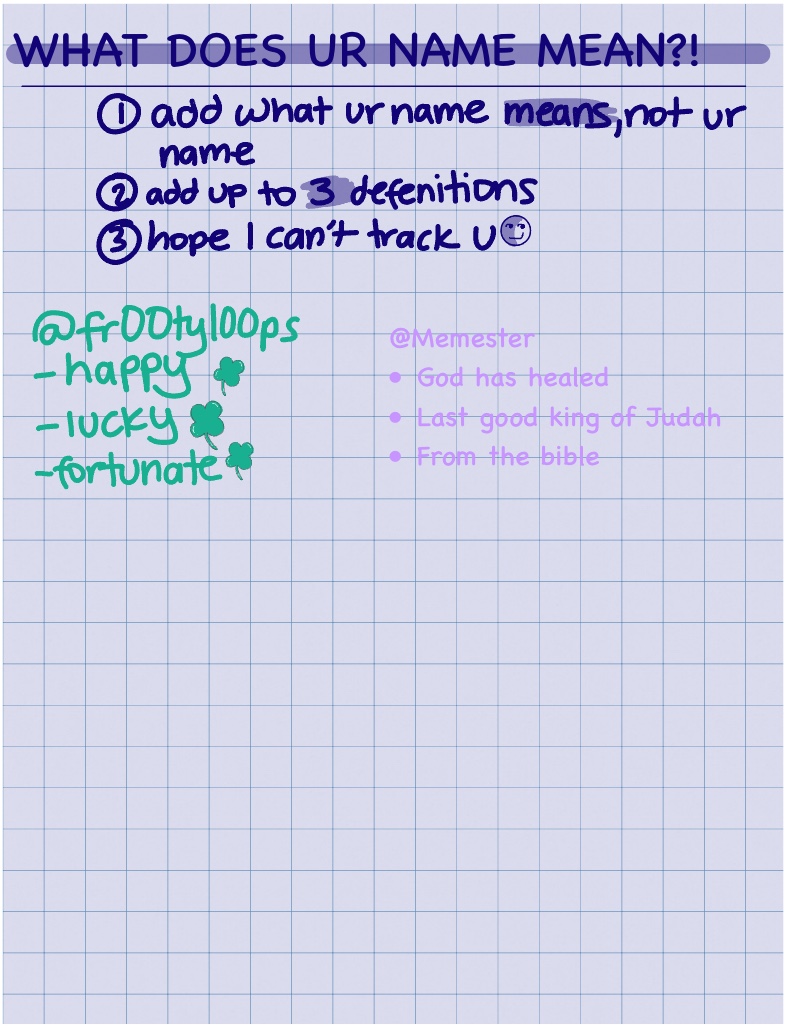 WHAT DOES UR NAME MEAN?!
① add what ur name means, not ur
name
② add up to 3 defenitions
③ hope I can't track u
@fr00tyl00ps
-happy
-lucky
-fortunate
@Memester
• God has healed
• Last good king of Judah
• From the bible